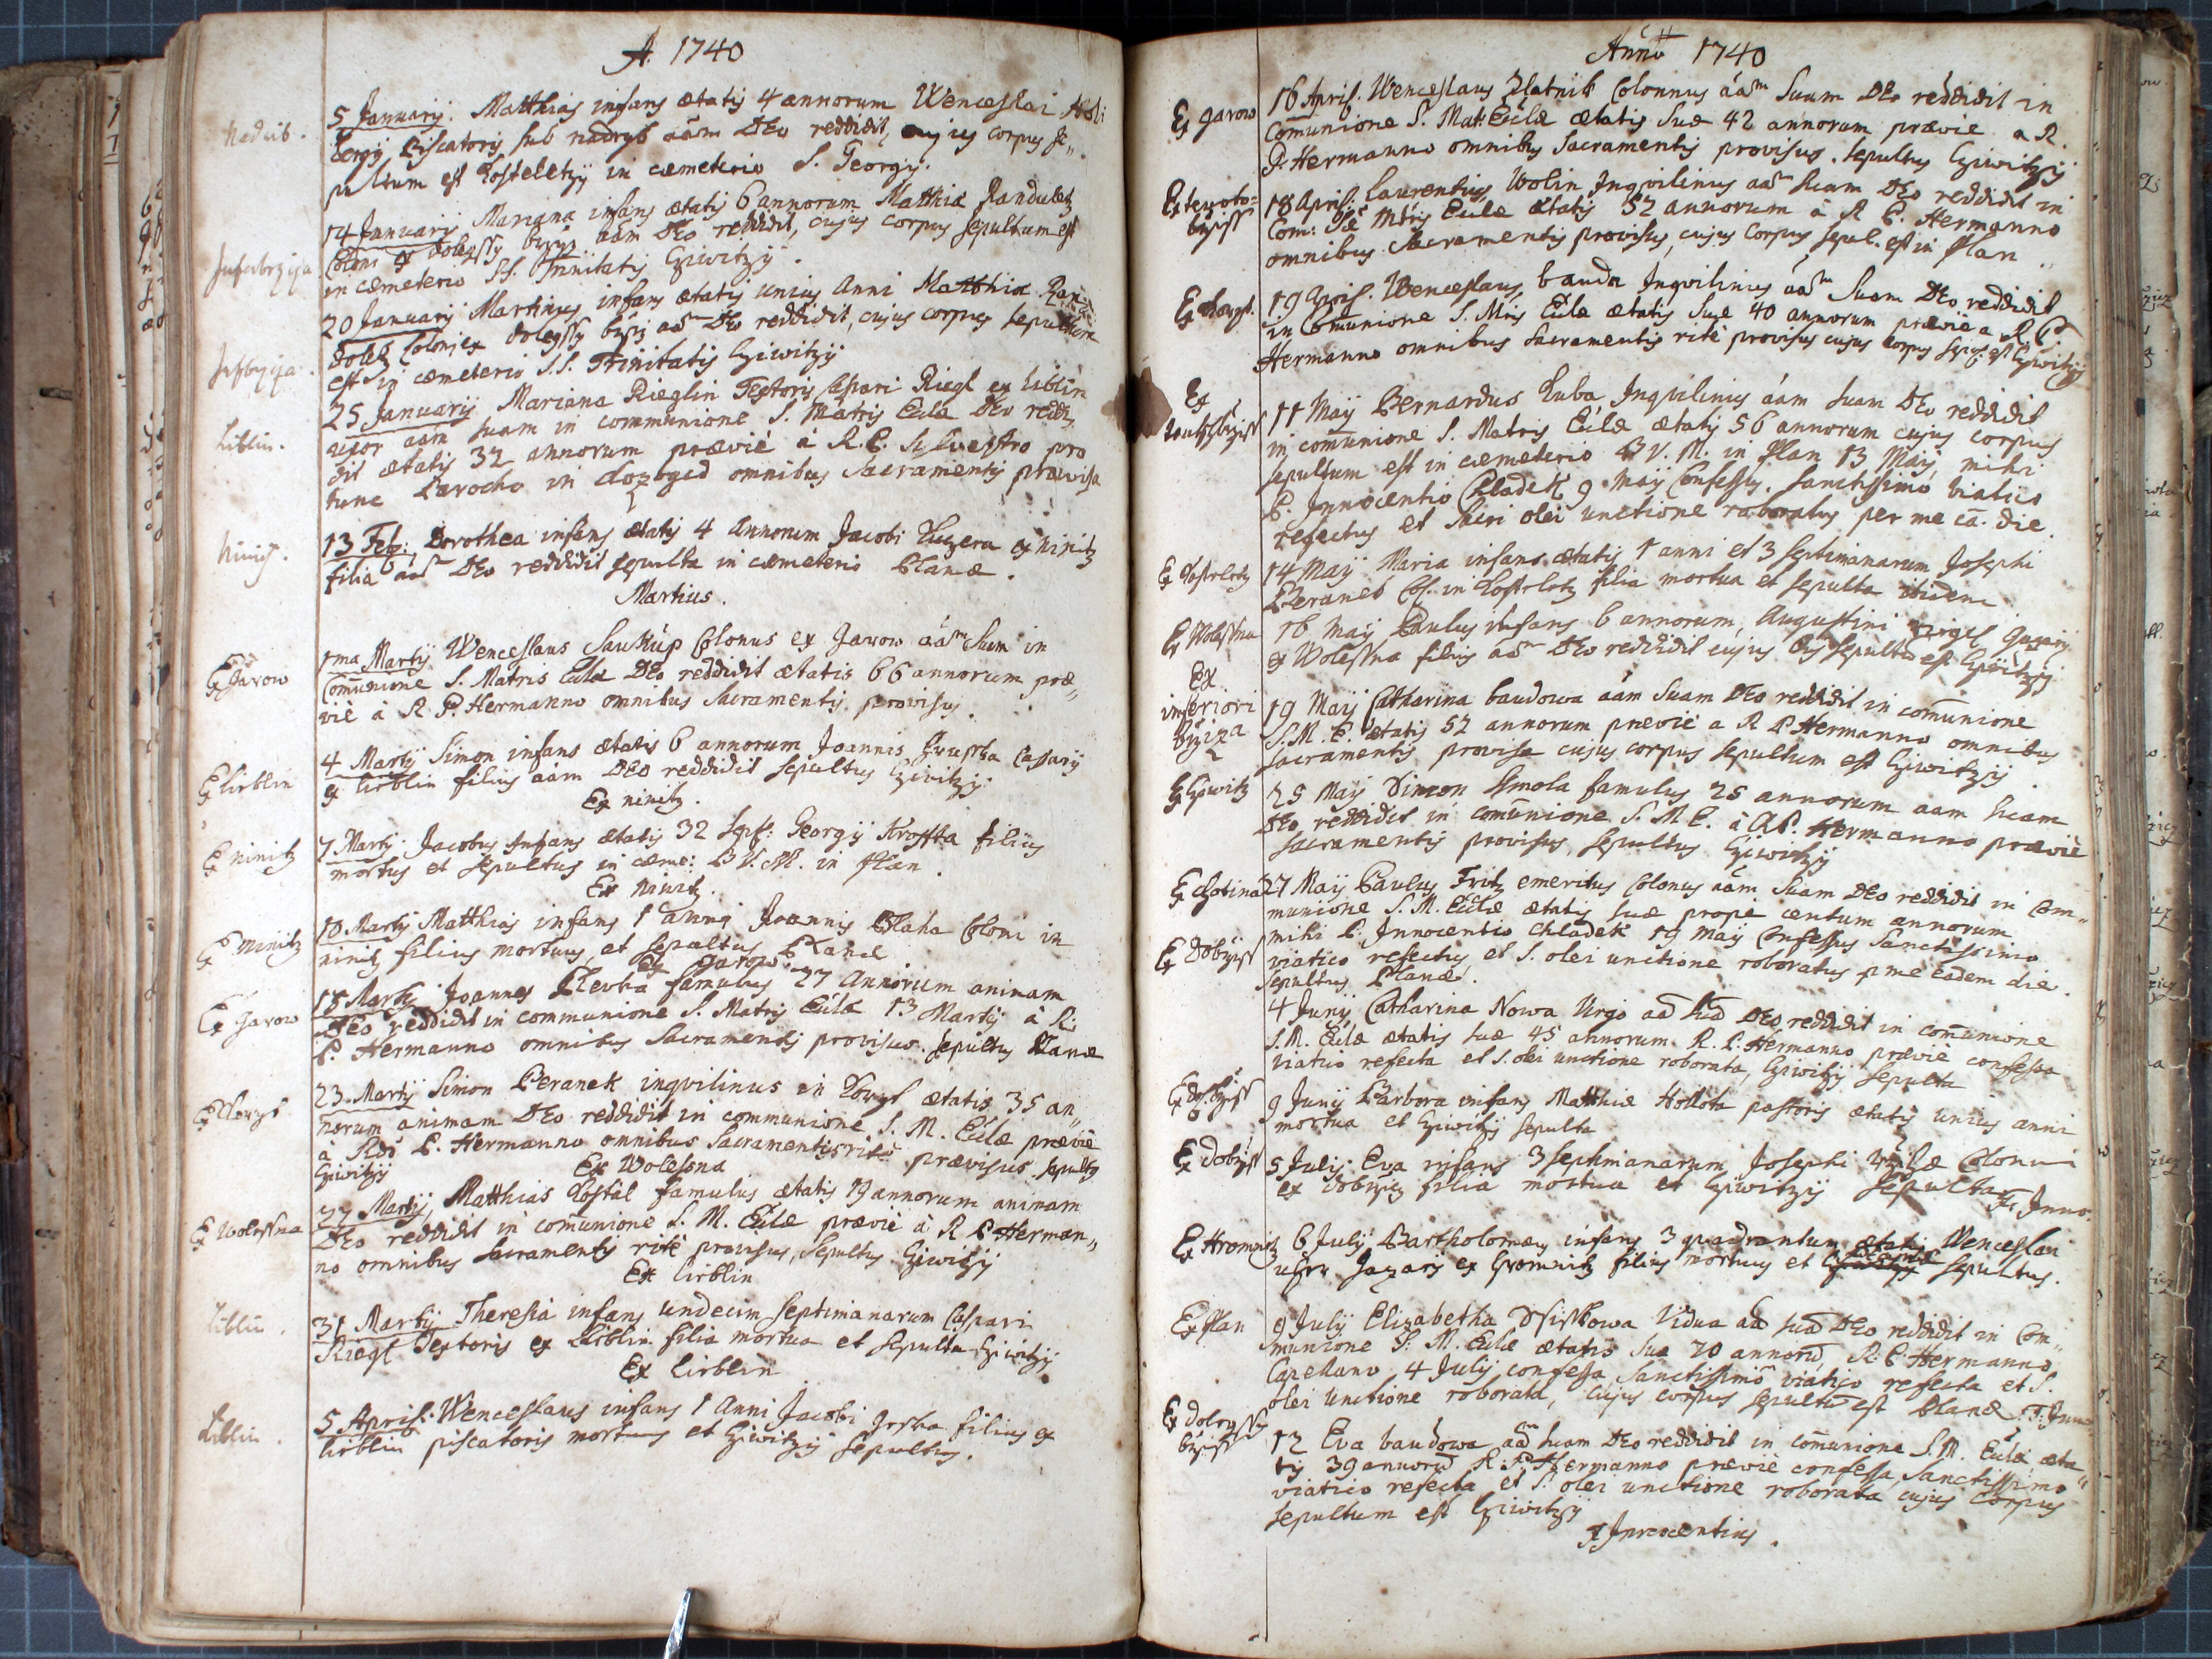 A. 1740
Nadrib.
5 Januarij. Matthias infans ætatis 4 annorum Wenceslai
bergij Piscatoris sub nadryb aãm DEo reddidit, cujus corpus se„
pultum est Kosteletzij in cæmeterio S. Georgij.
14 Januarij Mariana infans ætatis 6 annorum Matthiæ Randuletz
Coloni ex dolegssy bržiz aãm DEo reddidit, cujus corpus sepultum est
in cæmeterio SS. Trinitatis Gziwitzij.
20 Januarij Martinus infans ætatis unius anni Matthiæ Ran„
doletz Coloni ex dolegssy bržiz aãm DEo reddidit, cujus corpus sepultum
est in cæmeterio S.S. Trinitatis Gziwitzij
Liblin.
25 Januarij Mariana Rieglin Textoris Caspari Riegl ex Liblin
uxor aãm suam in communione S. Matris Eulæ DEo reddi„
dit ætatis 32 annorum præviè à R.P. Sylvestro pro
tunc Parocho in omnibus Sacramentis provisa
Ninitz.
13 Feb: Dorothea infans ætatis 4 Annorum Jacobi Kuczera ex Ninitz
filia aãm DEo reddidit sepulta in cæmeterio Planæ.
Martius.
Ex Jarow
1ma Martij Wenceslaus Saukúp Colonus ex Jarow aãm Suam in
Comunione S. Matris Eulæ DEo reddidit ætatis 66 annorum præ„
viè à R.P. Hermanno omnibus Sacramentis provisus.
Ex Lieblin
4 Martij Simon infans ætatis 6 annorum Joannis Hruska Casarij
ex Lieblin filius aãm DEo reddidit sepultus Gziwitzij.
Ex ninitz.
Ex ninitz
7 Martij. Jacobus Infans ætatis 32 Sept: Georgij Krofta filius
mortus et sepultus in cæme: B.V.M. in Plan.
Ex Ninitz.
Ex Ninitz
10 Martij Matthias infans 1 anni Joannis Blaha Coloni in
ninitz filius mortuus, et sepultus Planæ
Ex Jarow.
Ex Jarow
18 Martij Joannes Klevka famulus 27 Annorum animam
DEo reddidit in communione S. Matris Eulæ 13 Martij à R.
P. Hermanno omnibus Sacramentis provisus. sepultus Planæ
23. Martij Simon Beranek inqvilinus in ætatis 35 an„
norum animam DEo reddidit in communione S. M. Eulæ præviè
à Rdo P. Hermanno omnibus Sacramentis ritè provisus. sepultus
Gziwitzij
Ex Wolessna
Ex Wolessna
27 Martij, Matthias Kostal famulus ætatis 19 annorum animam
DEo reddidit in comunione S. M. Eulæ præviè à R P Herman„
no omnibus sacramentis ritè provisus, Sepultus Gziwitzij
Ex Lieblin
Liblin.
31 Martij Theresia infans undecim septimanarum Caspari
Riegl Textoris ex Lieblin filia mortua et sepulta Gziwitzij.
Ex Lieblin
Liblin.
5 Aprilis. Wenceslaus infans 1 Anni Jacobi filius ex
Lieblin piscatoris mortuus et Gziwitzij sepultus.
Anno 1740
Ex Jarow
16 April. Wenceslaus Zlatnik Colonnus aãm Suum DEo reddidit in
Comunione S. Mat: Eulæ ætatis suæ 42 annorum præviè a R.
P. Hermanno omnibus Sacramentis provisus. sepultus Gziwitzij.
18 April: Laurentius Wolin Inqvilinus aãm suam DEo reddidit in
Com: Stæ Mtris Eulæ ætatis 52 annorum à R P. Hermanno
omnibus Sacramentis provisus, cujus corpus sepul. est in Plan
19 April. Wenceslaus bauda Inqvilinus aãm Suam DEo reddidit
in Comunione S. Mris Eulæ ætatis suæ 40 annorum præviè a R.P.
Hermanno omnibus Sacramentis ritè provisus cujus corpus sepul: est Gziwitzij
Ex
11 Maij Bernardus Kuba Inqvilinus aãm suam DEo reddidit
in comunione S. Matris Eulæ ætatis 56 annorum cujus corpus
sepultum est in cæmeterio B V. M. in Plan 13 Maij, mihi
P. Innocentio Chladek 9 Maij Confessus. sanctissimo viatico
refectus et Sacri olei unctione roboratus per me eã. die.
Ex Kosteletz
14 Maij Maria infans ætatis 1 anni et 3 septimanarum Josephi
Beranek Col. in Kosteletz filia mortua et sepulta ibidem
Ex Wolessna
16 Maij Paulus infans 6 annorum, Augustini
ex Wolessna filius aãm DEo reddidit cujus sepultũ est Gziwitzij
Ex
inferiori
bržiza
19 Maij Catharina baudowa aãm Suam DEo reddidit in comunione
S. M. E. ætatis 52 annorum præviè a R P Hermanno omnibus
sacramentis provisa cujus corpus sepultum est Gziwitzij
Ex Gziwitz
25 Maij Simon Smola famulus 25 annorum aãm suam
DEo reddidit in comunione S. M. E. à R P. Hermanno præviè
sacramentis provisus, sepultus Gziwitzij
Ex Chotina
27 Maij Paulus Fritz emeritus Colonus aãm Suam DEo reddidit in Com„
munione S. M. Eulæ ætatis suæ propè centum annorum
mihi P. Innocentio Chladek 19 Maij Confessus Sanctissimo
viatico refectus et S. olei unctione roboratus p me eadem die.
sepultus Planæ.
Ex Dobržist
4 Junij Catharina Nowa Virgo aã suã DEo reddidit in comunione
S. M. Eulæ ætatis suæ 45 annorum. R. P. Hermanno præviè confessa
viatico refecta et S. olei unctione roborata, Gziwitzij sepulta
9 Junij Barbora infans Matthiæ Hollota pastoris ætatis unius anni
mortua et Gziwitzij sepulta
Ex Dobržist
5 Julij. Eva infans 3 septimanarum Josephi Coloni
ex dobržiz filia mortua et Gziwitzij sepulta
F. Inno.
Ex Hromnitz
6 Julij Bartholomæus infans 3 quadrantum ætatis Wenceslai
ex Hromnitz filius mortuus et sepultus.
Ex Plan
9 Julij Elizabetha Vidua aã suã DEo reddidit in Com„
munione S. M. Eulæ ætatis suæ 70 annorũ, R. P. Hermanno
Capellano 4 Julij confessa Sanctissimo viatico refecta et S.
olei unctione roborata, cujus corpus sepultũ est Planæ. F. Inno
12 Eva baudowa aãm suam DEo reddidit in comunione S. M. Eulæ æta„
tis 39 annorũ R. P. Hermanno præviè confessa, Sanctissimo
viatico refecta et S. olei unctione roborata cujus corpus
sepultum est Gziwitzij
F. Innocentius.